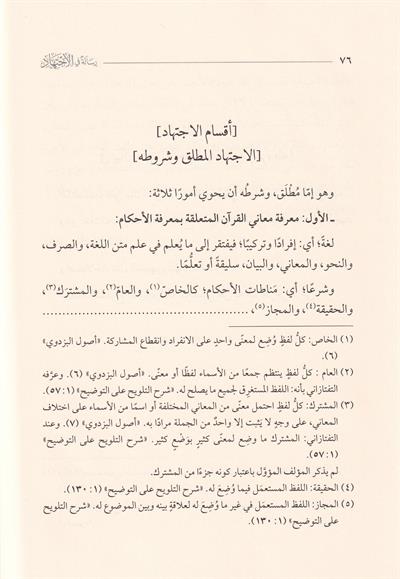 ٧٦ رسالة في الاجتهاد
[أقسام الاجتهاد]
[الاجتهاد المطلق وشروطه]
وهو إمّا مُطْلَق، وشرطُه أن يحوي أمورًا ثلاثة:
ـ الأول: معرفة معاني القرآن المتعلقة بمعرفة الأحكام:
لغةً؛ أي: إفرادًا وتركيبًا؛ فيفتقر إلى ما يُعلم في علم متن اللغة، والصرف،
والنحو، والمعاني، والبيان، سليقةً أو تعلُّمًا.
وشرعًا؛ أي: مَناطات الأحكام؛ كالخاصّ(١)، والعامّ(٢)، والمشترَك(٣)،
والحقيقة(٤)، والمجاز(٥)، ................................................
(١) الخاص: كلُّ لفظٍ وُضِع لمعنًى واحدٍ على الانفراد وانقطاع المشاركة. «أصول البزدوي»
(٦).
(٢) العام : كلُّ لفظٍ ينتظم جمعًا من الأسماء لفظًا أو معنًى. «أصول البزدوي» (٦). وعرَّفه
التفتازاني بأنه: اللفظ المستغرِق لجميع ما يصلح له. «شرح التلويح على التوضيح» (١: ٥٧).
(٣) المشترك: كلُّ لفظٍ احتمل معنًى من المعاني المختلفة أو اسمًا من الأسماء على اختلاف
المعاني، على وجهٍ لا يثبت إلا واحدٌ من الجملة مرادًا به. «أصول البزدوي» (٧). وعند
التفتازاني: المشترك ما وضِع لمعنًى كثيرٍ بوَضْعٍ كثير. «شرح التلويح على التوضيح»
(١: ٥٧).
لم يذكر المؤلف المؤوَّل باعتبار كونه جزءًا من المشترك.
(٤) الحقيقة: اللفظ المستعمَل فيما وُضِعَ له. «شرح التلويح على التوضيح» (١: ١٣٠).
(٥) المجاز: اللفظ المستعمَل في غير ما وُضِعَ له لعلاقةٍ بينه وبين الموضوع له. «شرح التلويح
على التوضيح» (١: ١٣٠).